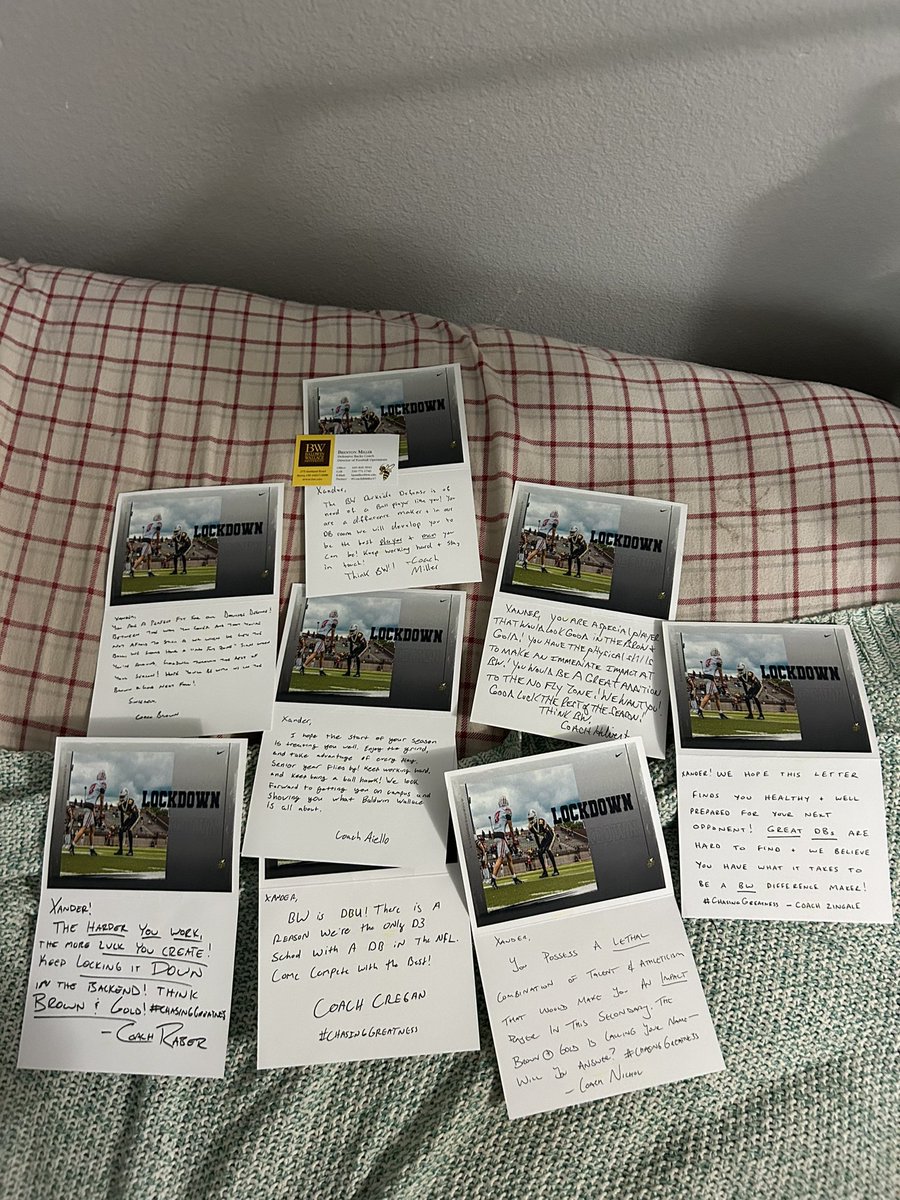 LOCKDOWN
BW
BALDWIN
WALLACE
BRENTON MILLER
Defensive Backs Coach
Director of Football Operations
Xander,
The BW Darkside Defense is in
need of a Ball player like you! You
are a difference maker + in our
DB room we will develop you to
be the best player + man you
can be! Keep working hard + stay
in touch!
Think BW! - Coach
Miller
LOCKDOWN
Xander,
You Are A Perfect Fit For our Darkside Defense!
Sincerely,
Coach Brown
LOCKDOWN
XANDER, YOU ARE A SPECIAL PLAYER
THAT WOULD LOOK GOOD IN THE BROWN &
GOLD! YOU HAVE THE PHYSICAL SKILLS
TO MAKE AN IMMEDIATE IMPACT AT
BW! YOU WOULD BE A GREAT ADDITION
TO THE NO FLY ZONE! WE WANT YOU!
GOOD LUCK THE REST OF THE SEASON!
THINK BW,
COACH
LOCKDOWN
Xander,
I hope the start of your season
is treating you well. Enjoy the grind,
and take advantage of every day.
Senior year flies by! Keep working hard,
and keep being a ball hawk! We look
forward to getting you on campus and
showing you what Baldwin Wallace
is all about.
Coach Aiello
LOCKDOWN
XANDER! WE HOPE THIS LETTER
FINDS YOU HEALTHY + WELL
PREPARED FOR YOUR NEXT
OPPONENT! GREAT DBs ARE
HARD TO FIND + WE BELIEVE
YOU HAVE WHAT IT TAKES TO
BE A BW DIFFERENCE MAKER!
#CHASINGGREATNESS - COACH ZINGALE
LOCKDOWN
XANDER!
THE HARDER YOU WORK,
THE MORE LUCK YOU CREATE!
KEEP LOCKING IT DOWN
IN THE BACKEND! THINK
BROWN & GOLD! #CHASINGGREATNESS
- COACH RABER
XANDER,
BW IS DBU! THERE IS A
REASON WE'RE THE ONLY D3
SCHOOL WITH A DB IN THE NFL.
COME COMPETE WITH THE BEST!
COACH CREGAN
#CHASINGGREATNESS
LOCKDOWN
XANDER,
YOU POSSESS A LETHAL
COMBINATION OF TALENT & ATHLETICISM
THAT WOULD MAKE YOU AN IMPACT
PLAYER IN THIS SECONDARY. THE
BROWN & GOLD IS CALLING YOUR NAME-
WILL YOU ANSWER? #CHASINGGREATNESS
- COACH NICHOL